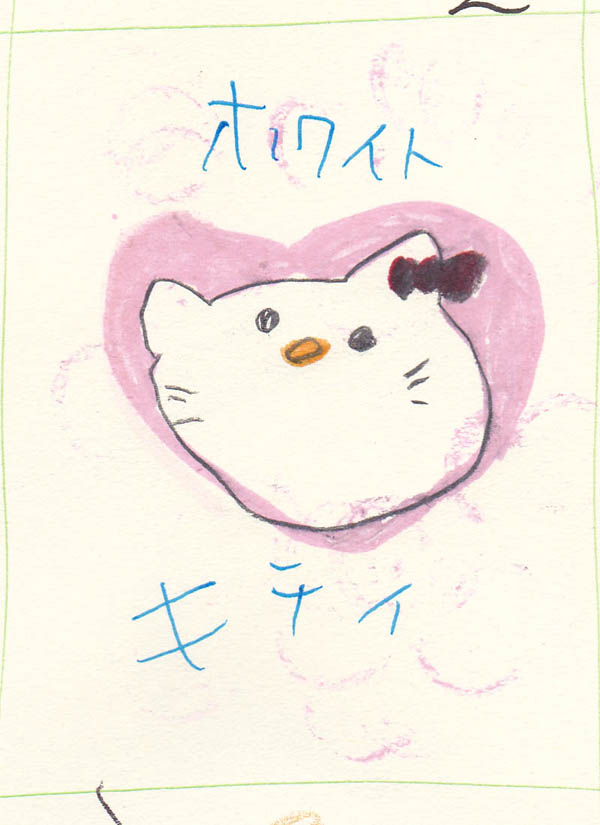 ホワイト
キティ